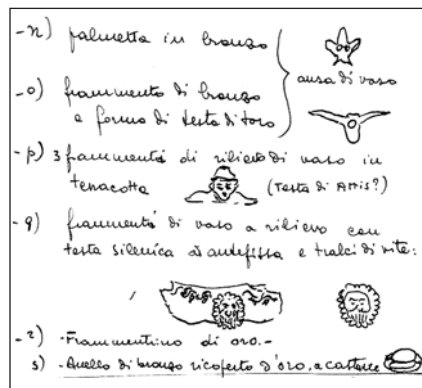 -n) palmetta in bronzo
ansa di vaso
-o) frammento di bronzo
a forma di testa di toro
-p) 3 frammenti di rilievo di vaso in
terracotta (Testa di Attis?)
-q) frammenti di vaso a rilievo con
testa silenica ad antefissa e tralci di vite:
-r) -Frammentino di oro.-
s) -Anello di bronzo ricoperto d'oro, a castone